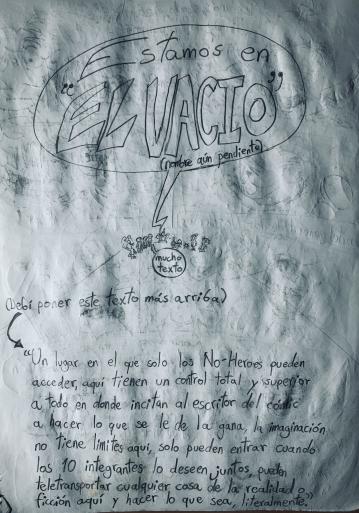 Estamos en
"EL VACIO"
(nombre aún pendiente)
mucho
texto
(Debí poner este texto más arriba)
"Un lugar en el que solo los No-Heroes pueden
acceder, aquí tienen un control total y superior
a todo en donde incitan al escritor del cómic
a hacer lo que se le de la gana, la imaginación
no tiene límites aquí, solo pueden entrar cuando
los 10 integrantes lo deseen juntos, pueden
teletransportar cualquier cosa de la realidad o
ficción aquí y hacer lo que sea, literalmente."